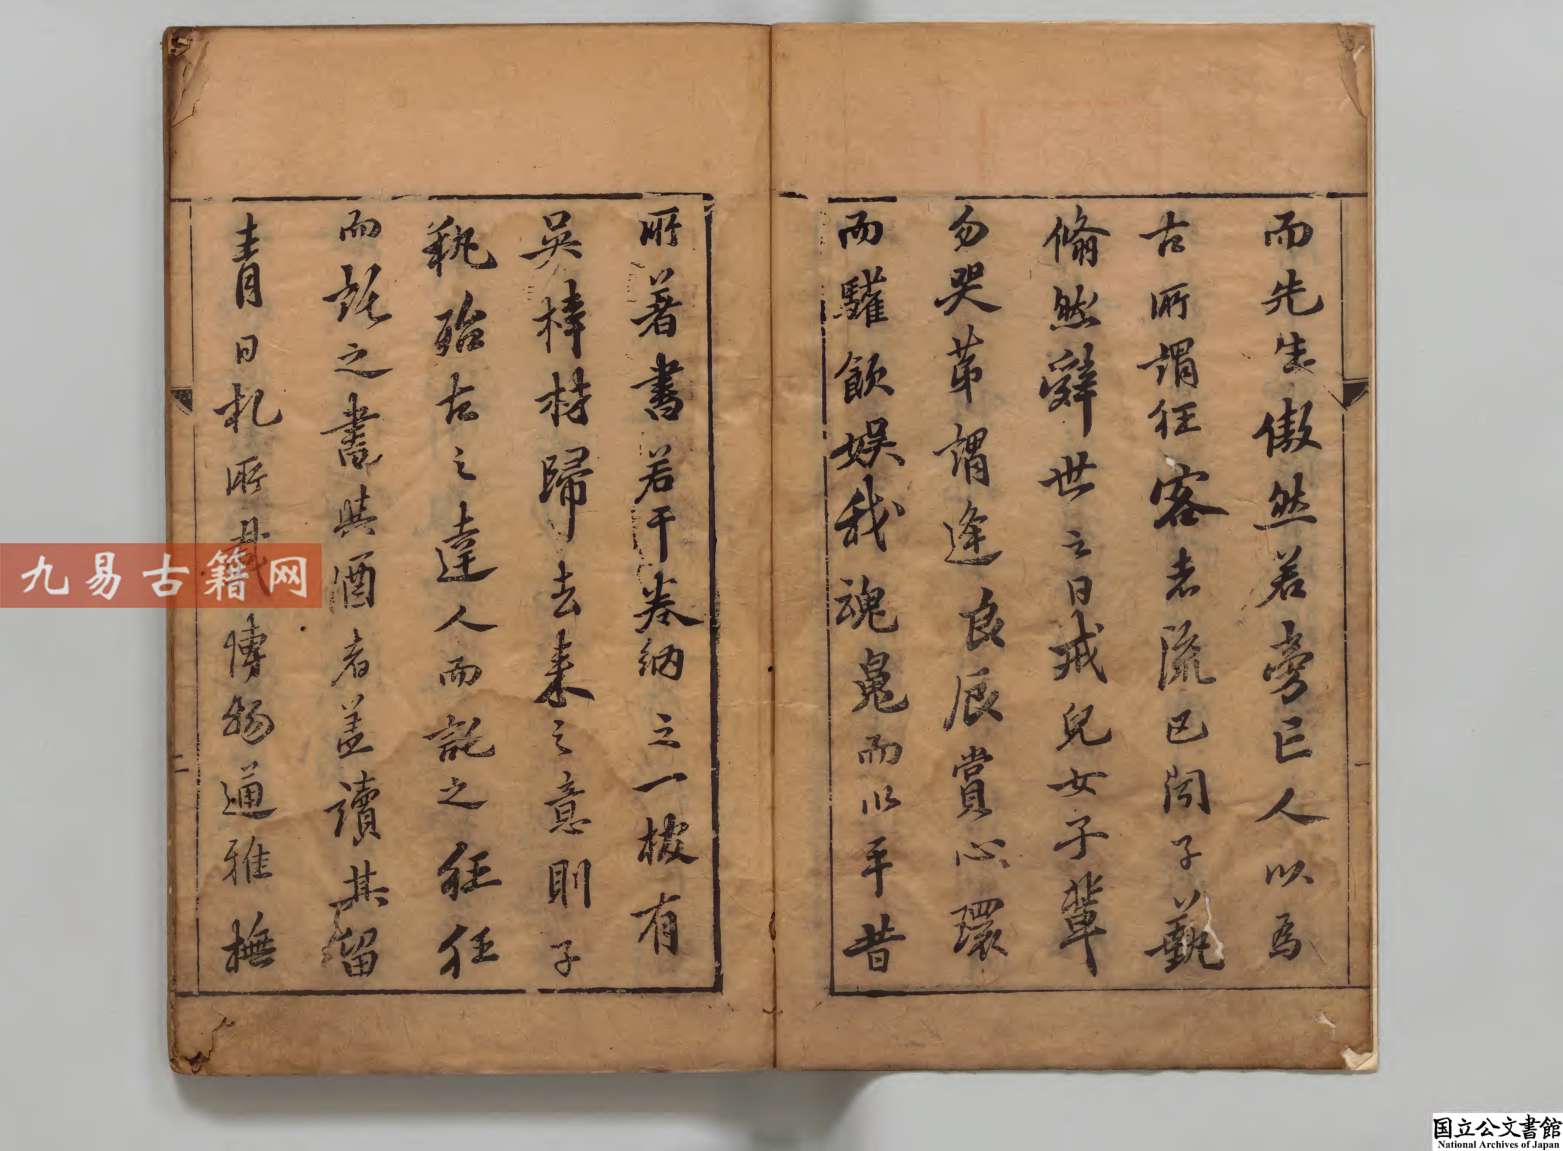 而先生傲然若旁亡人以爲
古所謂狂客者流已聞子藝
翛然辭世之日戒兒女子輩
勿哭苐謂逢良辰賞心環
而驩飲娛我魂魄而以平昔
所著書若干卷納之一有
吳歸去來之意則子
藝殆古之達人而託之狂狂
而託之書與酒者盖讀其留
青日札所載博物通雅橅
二
九易古籍网
国立公文書館
National Archives of Japan